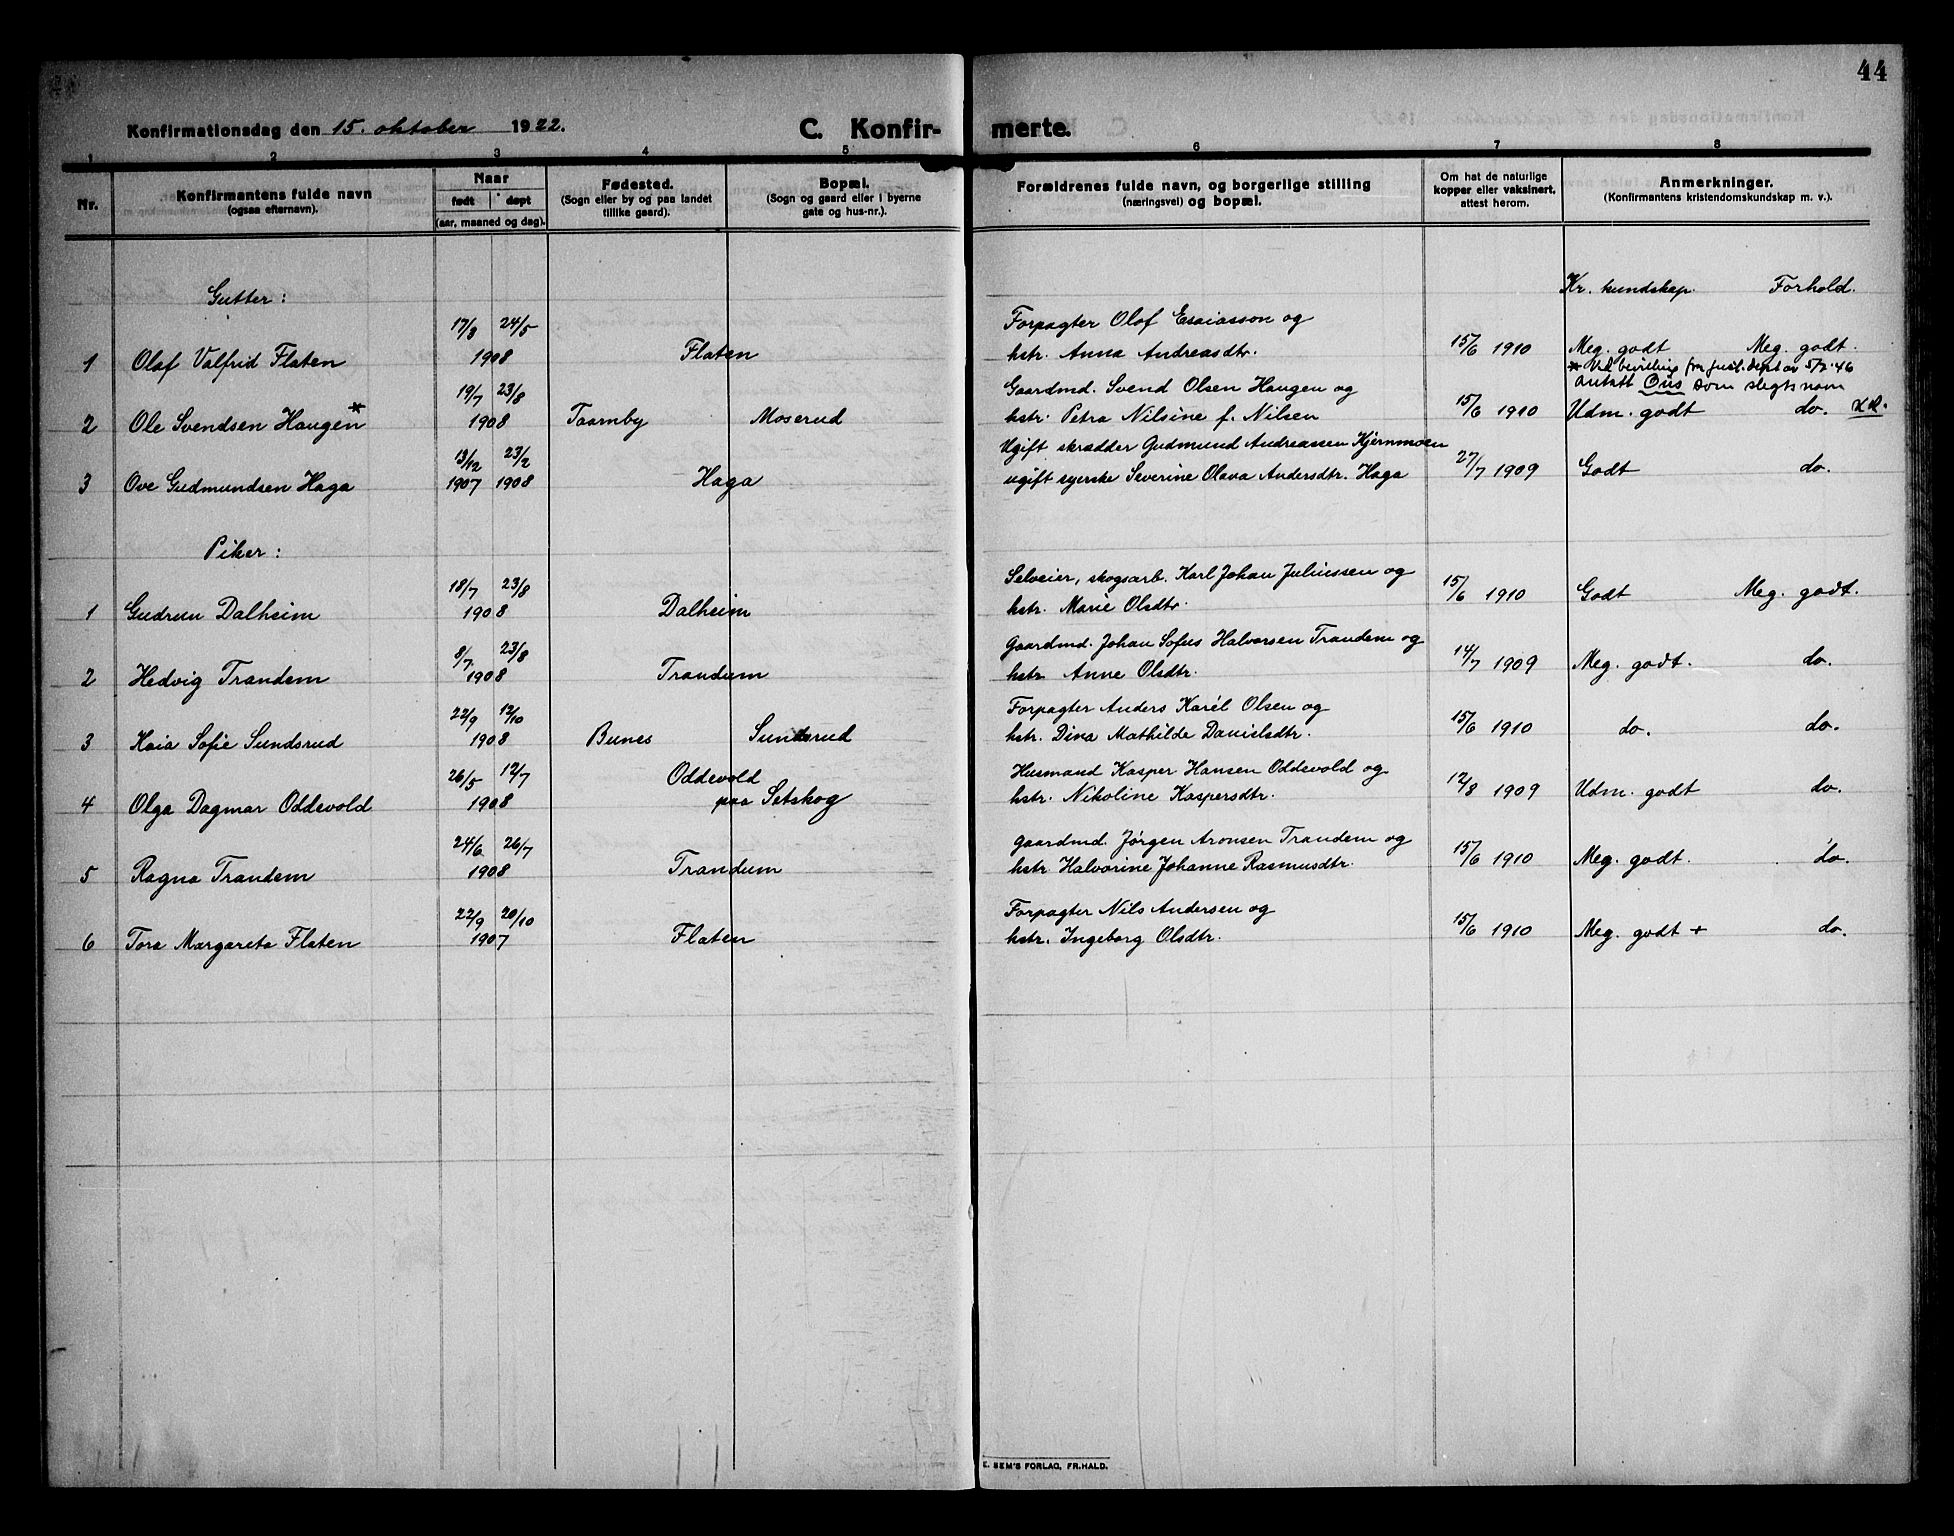 44
Konfirmationsdag den 15. oktober 1922.
C. Konfir- merte.
1 2 3 4 5 6 7 8
Nr.
Konfirmantens fulde navn
(ogsaa efternavn).
Naar
født døpt
(aar, maaned og dag).
Fødested.
(Sogn eller by og paa landet
tillike gaard).
Bopæl.
(Sogn og gaard eller i byerne
gate og hus-nr.).
Forældrenes fulde navn, og borgerlige stilling
(næringsvei) og bopæl.
Om hat de naturlige
kopper eller vaksinert,
attest herom.
Anmerkninger.
(Konfirmantens kristendomskundskap m. v.).
Gutter:
Kr. kundskap. Forhold.
17/3 24/5 Forpagter Olaf Esaiasson og
1 Olaf Valfrid Flaten 1908 Flaten hstr. Anna Andreasdtr. 15/6 1910 Meg. godt Meg. godt.
* Ved bevilling fra just. dept av 5/2·46
antatt Bus som slegtsnavn
19/7 23/8 Gaardmd. Svend Olsen Haugen og
2 Ole Svendsen Haugen* 1908 Taarnby Moserud hstr. Petra Nilsine f. Nilsen 15/6 1910 Udm. godt do.
13/12 23/2 Ugift skrædder Gudmund Andreassen Kjernmoen
3 Ove Gudmundsen Haga 1907 1908 Haga ugift syerske Severine Olava Andersdtr. Haga 27/7 1909 Godt do.
Piker:
18/7 23/8 Selveier, skogsarb. Karl Johan Juliussen og
1 Gudrun Dalheim 1908 Dalheim hstr. Marie Olsdtr. 15/6 1910 Godt Meg. godt.
8/7 23/8 Gaardmd. Johan Sofus Halvorsen Trandem og
2 Hedvig Trandem 1908 Trandum hstr. Anne Olsdtr. 14/7 1909 Meg. godt. do.
22/9 12/10 Forpagter Anders Karél Olsen og
3 Kaia Sofie Sundsrud 1908 Bunes Sundsrud hstr. Dina Mathilde Danielsdtr. 15/6 1910 do. do.
26/5 12/7 Oddevold Husmand Kasper Hansen Oddevold og
4 Olga Dagmar Oddevold 1908 paa Setskog hstr. Nikoline Kaspersdtr. 12/8 1909 Udm. godt do.
24/6 26/7 Gaardmd. Jørgen Aronsen Trandem og
5 Ragna Trandem 1908 Trandum hstr. Halvorine Johanne Rasmusdtr. 15/6 1910 Meg. godt. do.
22/9 20/10 Forpagter Nils Andersen og
6 Tora Margareta Flaten 1907 Flaten hstr. Ingeborg Olsdtr. 15/6 1910 Meg. godt + do.
E. SEM'S FORLAG, FR.HALD.